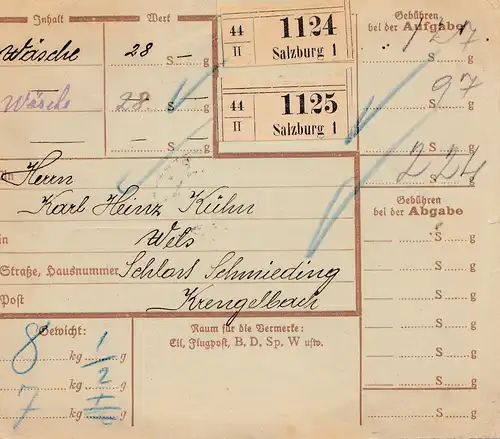 Inhalt Wert
Wäsche 28 S — g
Wäsche 28. S — g
— — S g
44
II
1124
Salzburg 1
44
II
1125
Salzburg 1
Gebühren
bei der Aufgabe
1 27
S g
97
S g
2 24
S g
Herrn
Karl Heinz Kühn
in Wels
Straße, Hausnummer Schloss Schmieding
Post Krengelbach
Gebühren
bei der Abgabe
S g
S g
S g
S g
S g
S g
S g
Gewicht:
8 kg 1/2 g
kg g
7 kg g
Raum für die Vermerke:
Eil, Flugpost, B. D. Sp. W usw.